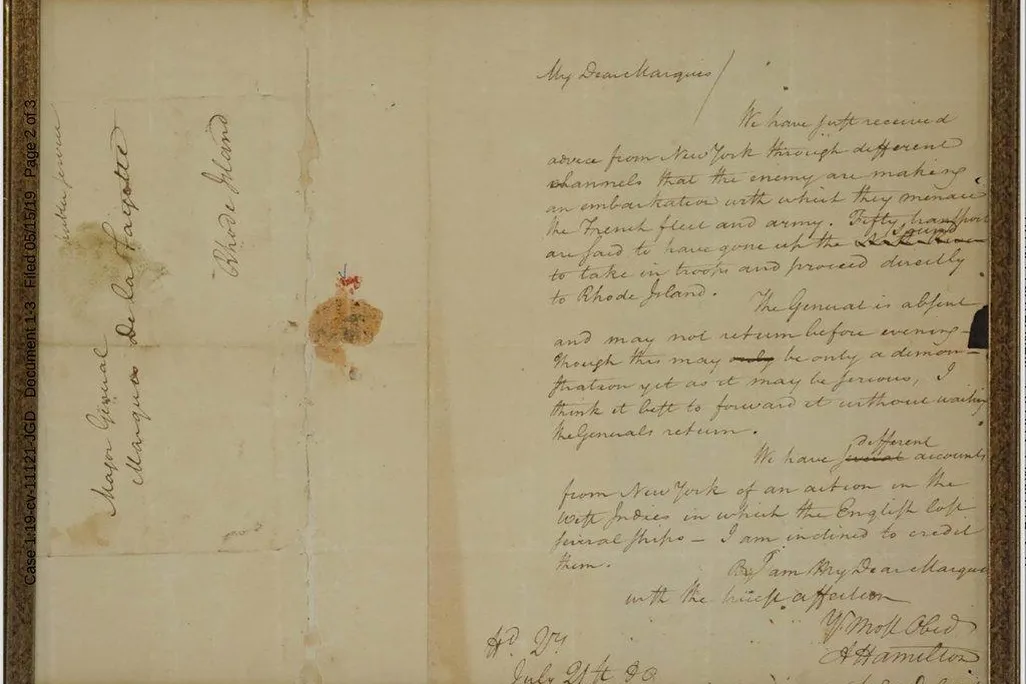 Case 1:19-cv-11121-JGD Document 1-3 Filed 05/15/19 Page 2 of 3
Major General
Marquis De la Fayette
Rhode Island
My Dear Marquis
We have just received
advice from New York through different
channels that the enemy are making
an embarkation with which they menace
the French fleet and army. Fifty transports
are said to have gone up the Sound
to take in troops and proceed directly
to Rhode Island.
The General is absent
and may not return before evening.
Though this may only be only a demon-
stration yet as it may be serious, I
think it best to forward it without waiting
the Generals return.
different
We have several accounts
from New York of an action in the
West Indies in which the English lost
several ships – I am inclined to credit
them.
I am My Dear Marquis
with the truest affection
Yr Most Obed
A Hamilton
Hd Qrs
July 21st 80